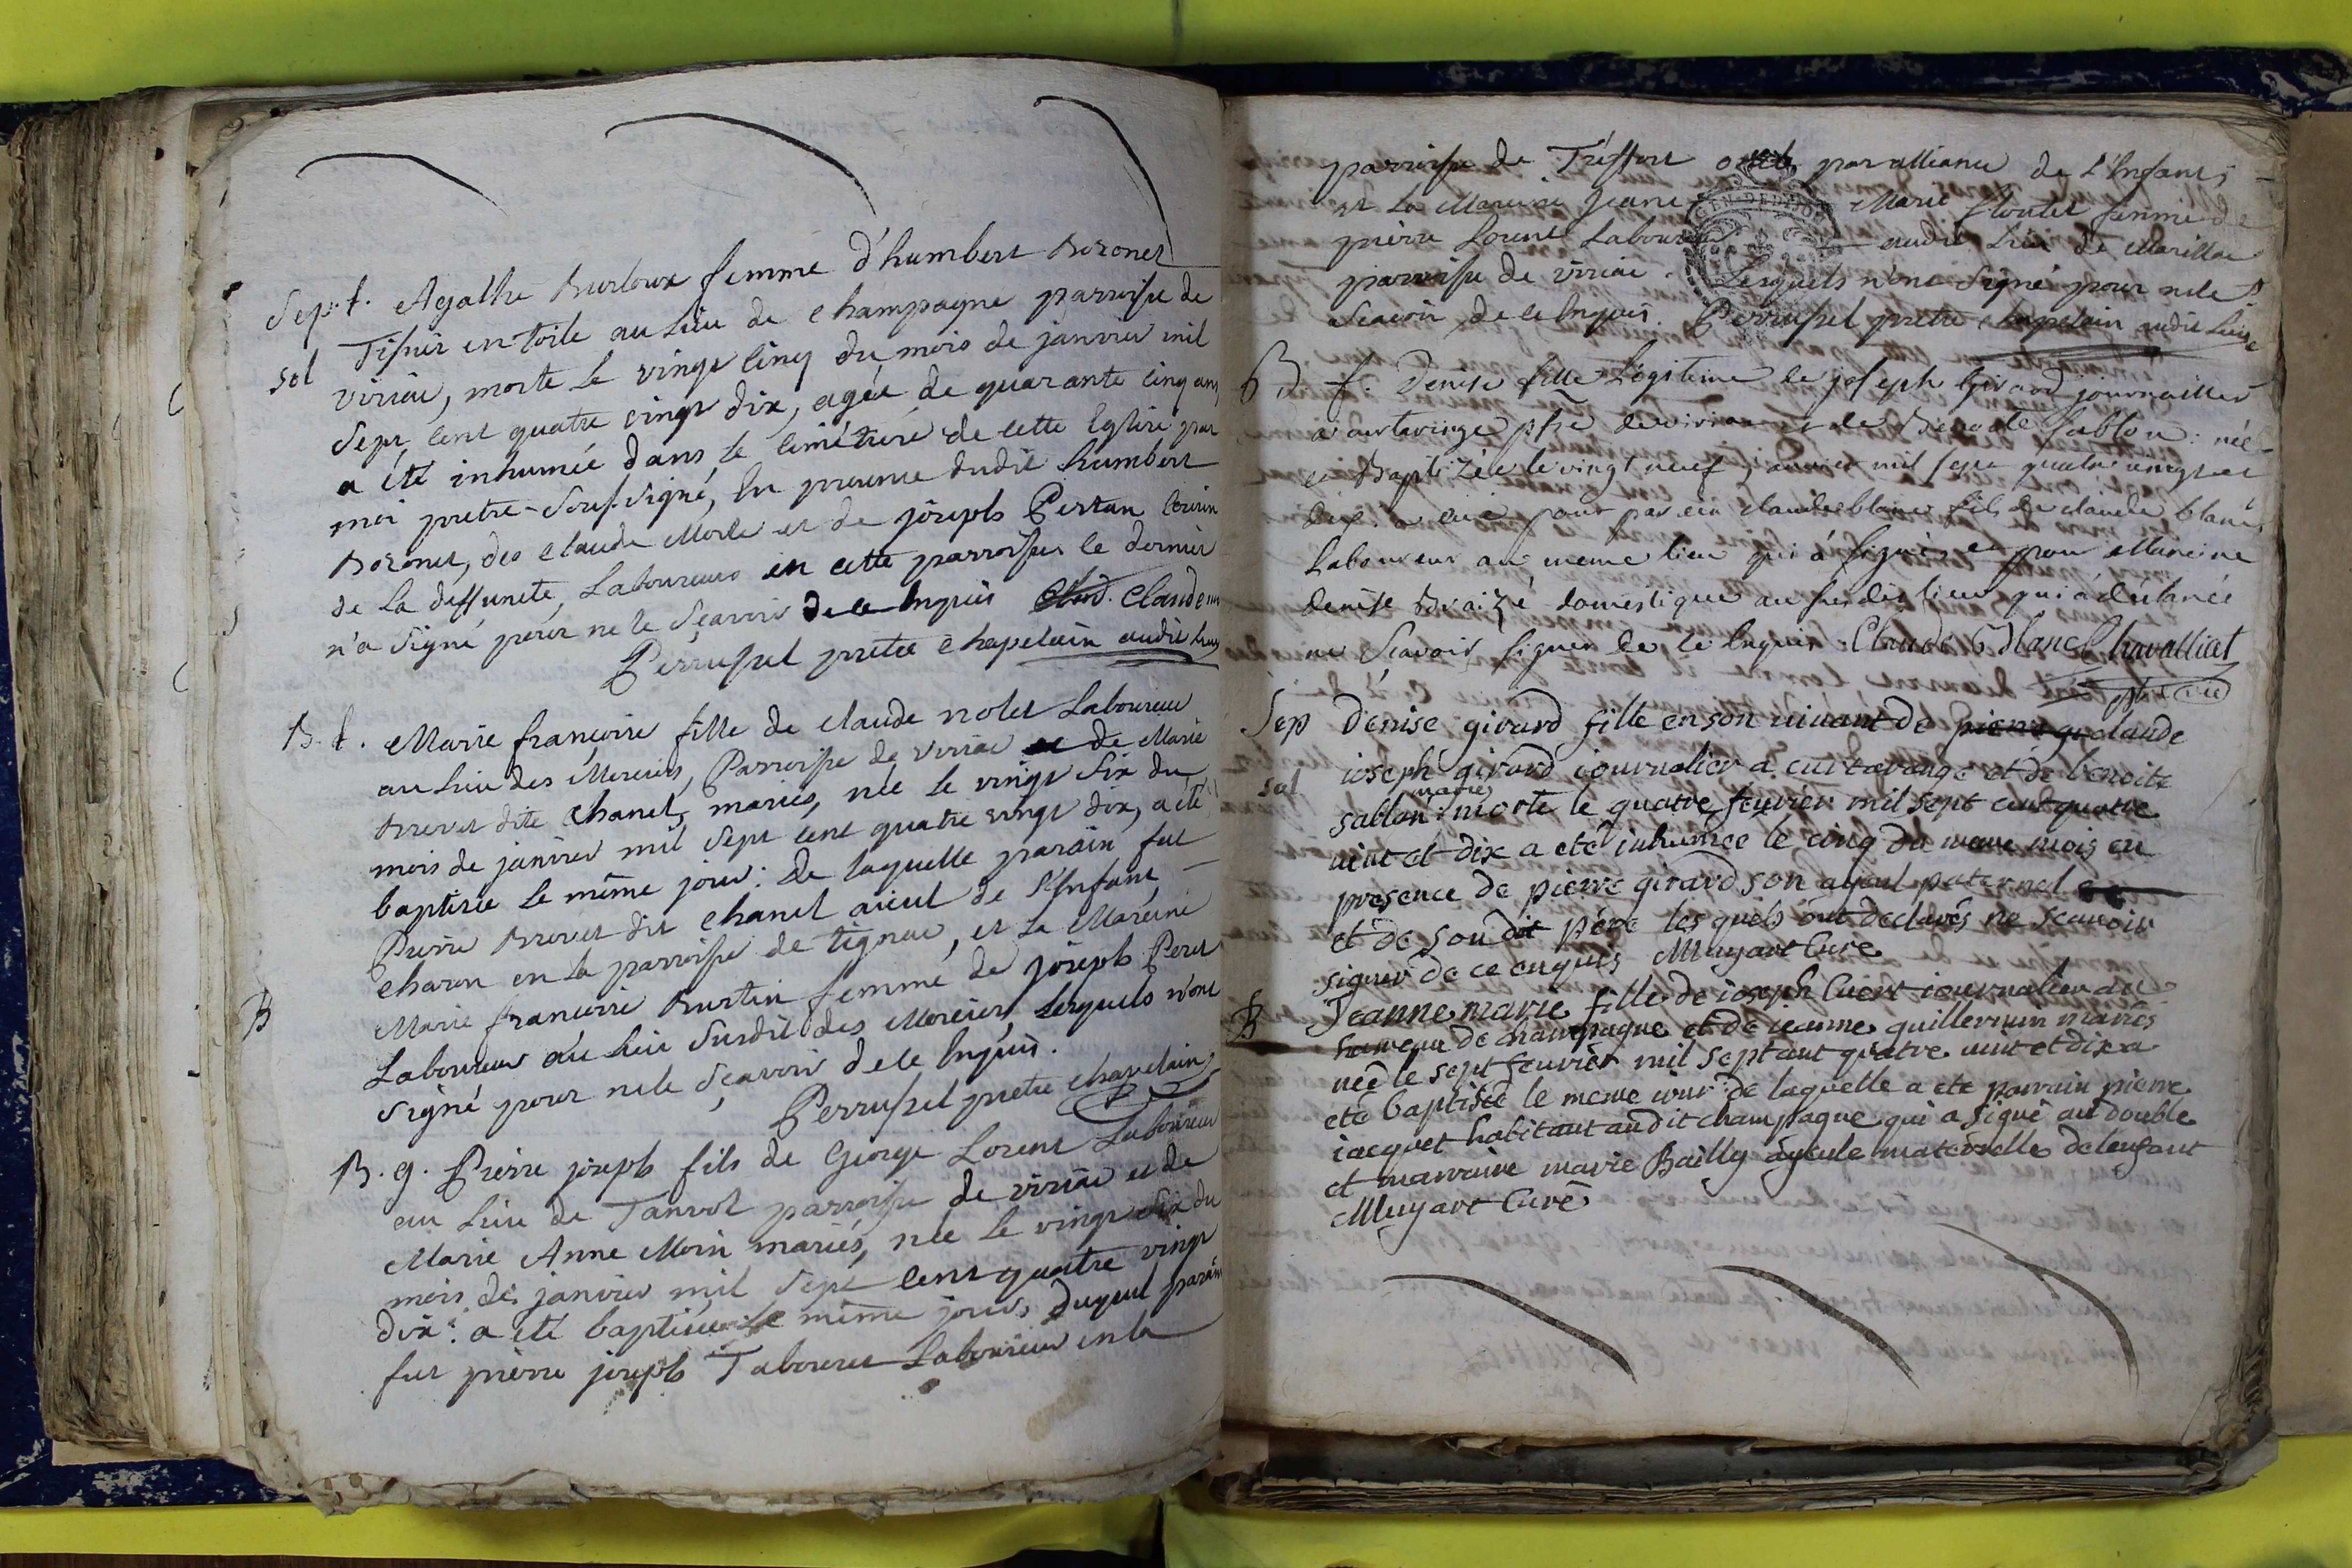 Sept. f. Agathe Burloux femme d'humbert Bozonet
sol Tisier en toile au Lieu de Champagne parroisse de
viriac, morte le vingt cinq du mois de janvier mil
Sept cent quatre vingt dix, agée de quarante cinq ans,
a été inhumée dans le Cimétiere de cette Eglise par
moi pretre Soussigné, En presence dudit humbert
Bozonet, des Claude Morle et de joseph Pertan Cousin
de la deffuncte, Laboureurs en cette parroisse le dernier
n'a signé pour ne le Sçavoir de ce Enquis Claude
Perrussel pretre Chapelain audit lieu
B. f. Marie françoise fille de Claude nolet Laboureur
au Lieu des Merciers, Parroisse de viriac et de Marie
Brevet dite Chanel, mariés, née le vingt Six du
mois de janvier mil Sept cent quatre vingt dix, a été
baptisée le même jour: De laquelle parain fut
Pierre Brevet dit Chanel aieul de l'Enfant,
charon en la parroisse de tignac, et La Mareine
B Marie françoise Burtin femme de joseph Peret
Laboureur au Lieu Susdit des Merciers, Lesquels n'ont
signé pour ne le Sçavoir de ce Enquis.
Perrussel pretre Chapelain
B. g. Pierre joseph fils de George Lorent Laboureur
au Lieu de Tanvol parroisse de viriac et de
Marie Anne Morin mariés, née le vingt Six du
mois de janvier mil Sept cent quatre vingt
dix: a été baptisé le même jour, duquel parain
fut pierre joseph Taboret Laboureur en la
parroisse de Treffort oncle par alliance de L'Enfant,
et La Mareine Jeane Marie floutet femme de
pierre Lorent Laboureur audit Lieu de Marillac
parroisse de viriac. Lesquels n'ont Signé pour ne le
Scavoir de ce Enquis. Perrussel pretre chapelain audit Lieu
B f. Denise fille Légitime de joseph Girard journaillier
a curtavinge psse de viriac et de Benoite sablon: née
et Baptizée le vingt neuf janvier mil sept quatre vingt et
dix. a eu pour parein claude blanc fils de claude blanc
Laboureur au meme lieu qui à signé, et pour Mareine
denise Braizé domestique au susdit lieu qui à déclaréé
ne Scavoir signer de ce Enquis. Claude Blanc Chavalliet
ptre vic
Sep Denise girard fille en son vivant de pierre gi claude
ioseph girard iournalier a curtavange et de benoite
sol mariés
sablon morte le quatre feuvrier mil sept cent quatre
vint et dix a eté inhumée le cinq du meme mois en
presence de pierre girard son ayeul paternel
et de son dit pére les quels ont declarés ne scavoir
signer de ce enquis Muyart Curé
B Jeanne marie fille de ioseph Cuert iournalier au
hameau de champagne et de ieanne guillermin mariés
née le sept feuvrier mil sept cent quatre vint et dix a
eté baptisée le meme iour: de laquelle a eté parrain pierre
iacquet habitant audit champagne qui a signé au double
et marraine marie Bailly ayeule maternelle de lenfant
Muyart Curé